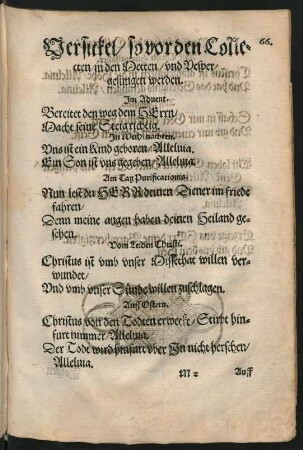 66.
Versickel / so vor den Colle-
cten in den Metten / vnd Vesper-
gesungen werden.
Im Advent.
Bereitet den weg dem HErrn /
Macht seine Steig richtig.
In Weihnachten.
Vns ist ein Kind geboren / Alleluia.
Ein Son ist vns gegeben / Alleluia.
Am Tag Purificationis.
Nun lest du HERR deinen Diener im friede
fahren /
Denn meine augen haben deinen Heiland ge-
sehen.
Vom Leiden Christi.
Christus ist vmb vnser Missethat willen ver-
wundet /
Vnd vmb vnser Sünde willen zuschlagen.
Auff Ostern.
Christus von den Todten erweckt / Stirbt hin-
furt nimmer / Alleluia.
Der Todt wird hinfurt vber Jn nicht herschen /
Alleluia.
M 2 Auff